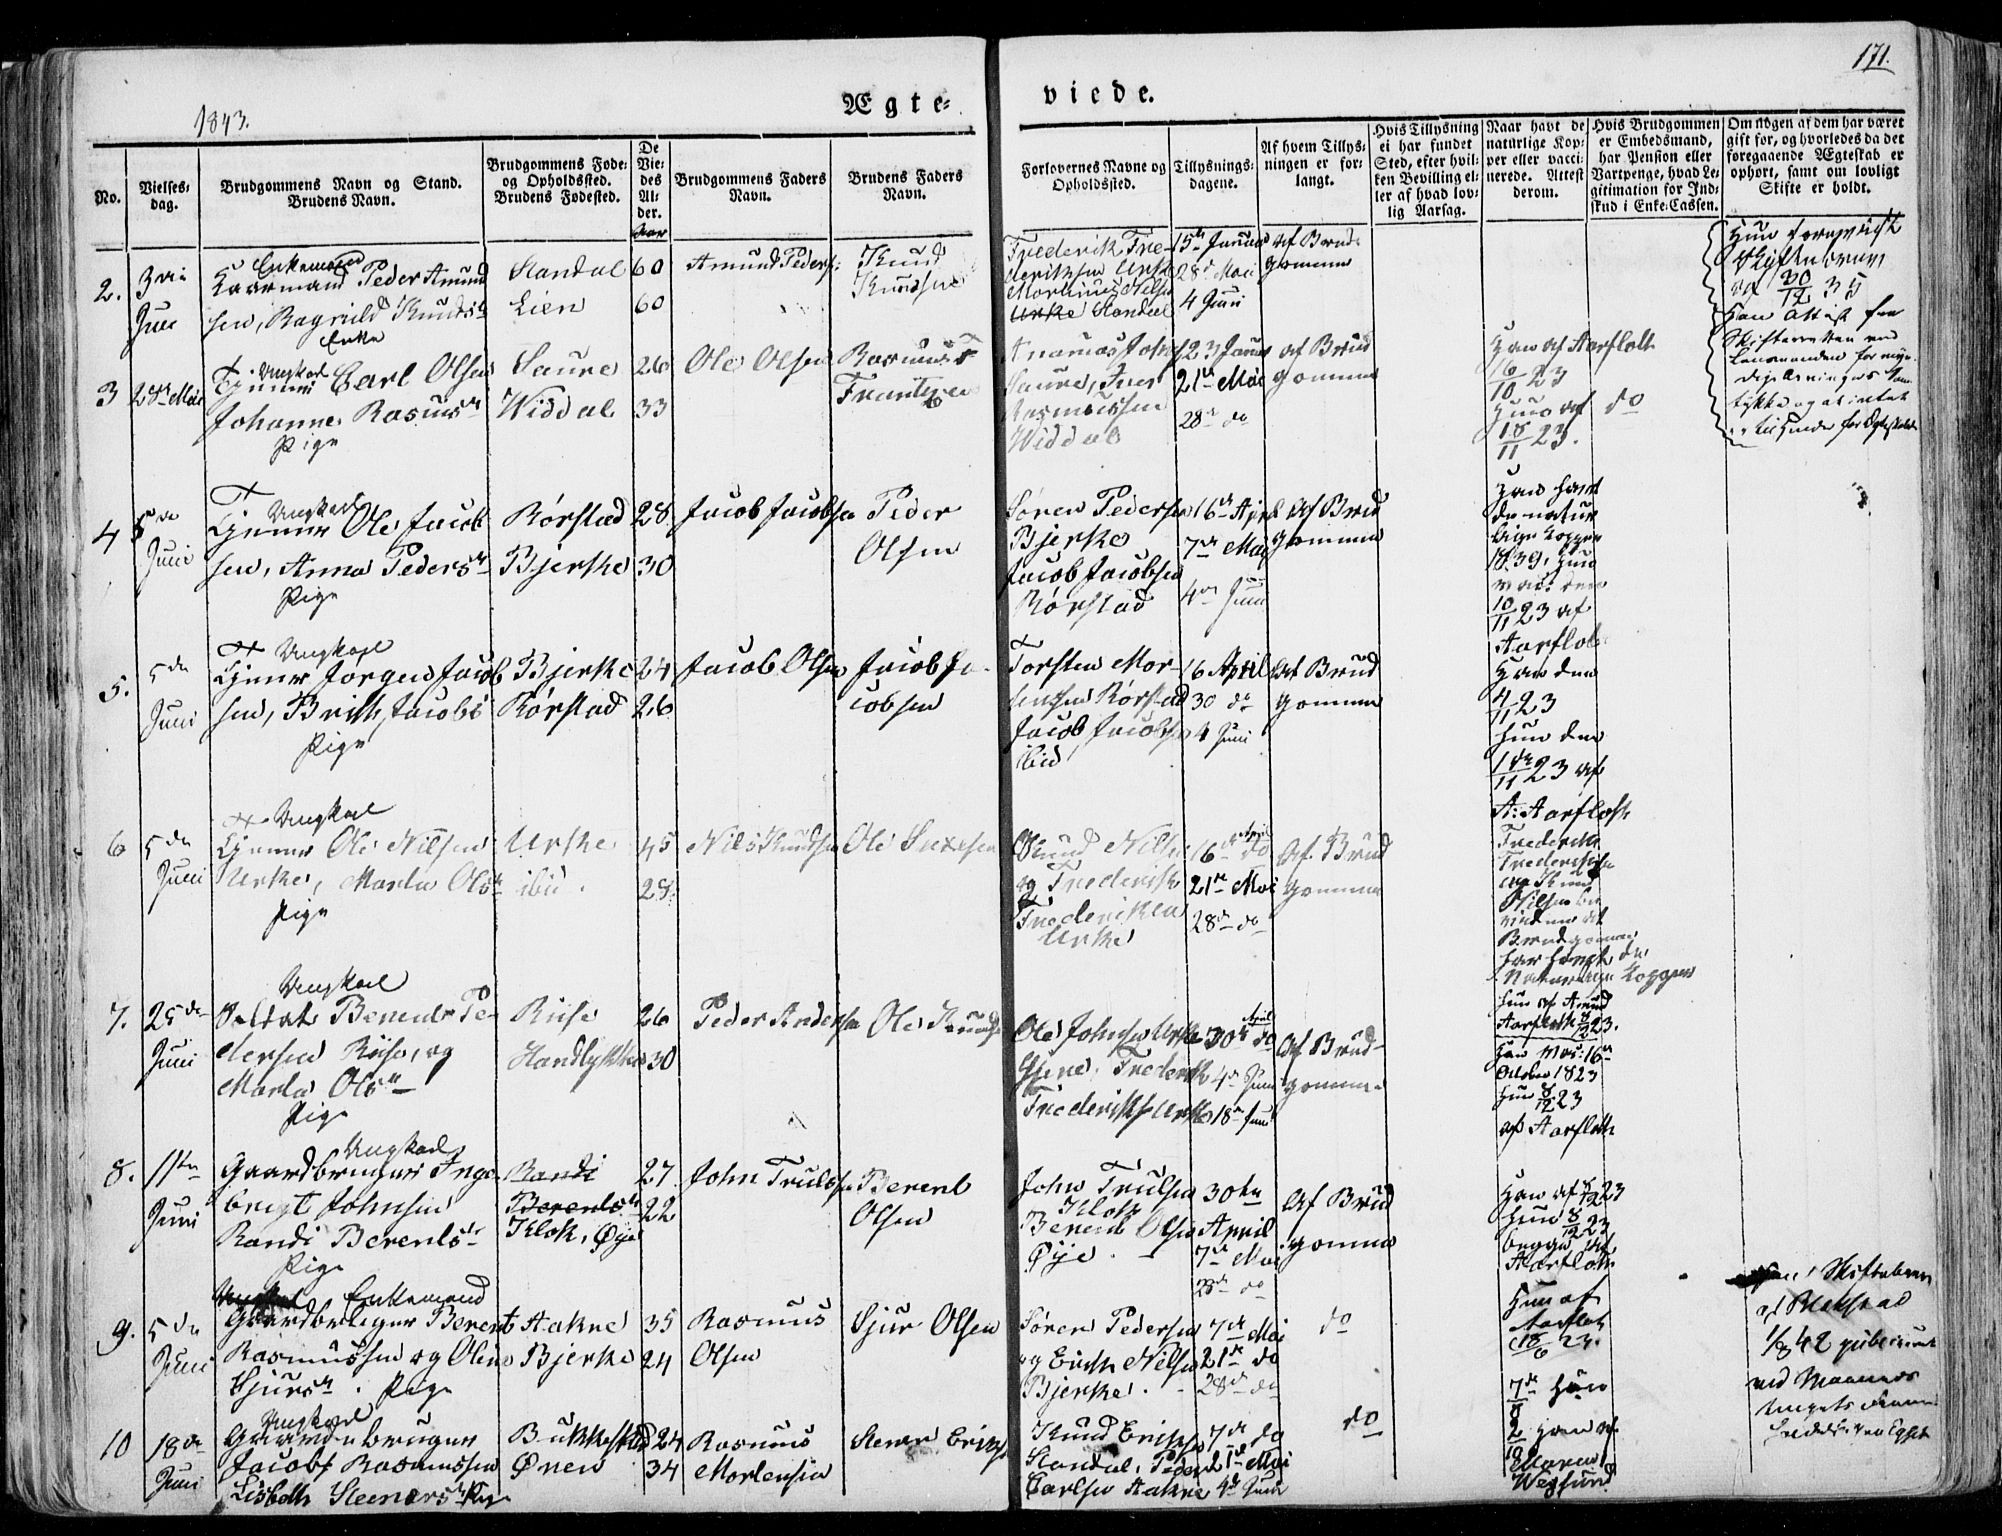 171.
1843.
Ægte-
viede.
No.
Vielses-
dag.
Brudgommens Navn og Stand.
Brudens Navn.
Brudgommens Føde-
og Opholdssted.
Brudens Fødested.
De
Vie-
des
Al-
der.
Aar
Brudgommens Faders
Navn.
Brudens Faders
Navn.
Forlovernes Navne og
Opholdssted.
Tillysnings-
dagene.
Af hvem Tillys-
ningen er for-
langt.
Hvis Tillysning
ei har fundet
Sted, efter hvil-
ken Bevilling el-
ler af hvad lov-
lig Aarsag.
Naar havt de
naturlige Kop-
per eller vacci-
nerede. Attest
derom.
Hvis Brudgommen
er Embedsmand,
har Pension eller
Vartpenge, hvad Le-
gitimation for Ind-
skud i Enke-Cassen.
Om nogen af dem har været
gift før, og hvorledes da det
foregaaende Ægteskab er
ophørt, samt om lovligt
Skifte er holdt.
2.
Juni
Enkemand
Kaarmand Peder Amund
sen, Ragnild Knudsdr
Enke
Standal
Lien
60
60
Amund Peders
Knud
Knudsen
Frederik Fre-
deriksen Urke
Morinus Nils
Urke Standal
15de Januar
28de Mai
4 Juni
af Brud-
gommen
Hun
Skiftebrev
af 30/12 35
Han Attest fra
Skifteretten
3
28de Mai
Ungkarl
Tjener Carl Olsen
Johanne Rasmusdr
Pige
Saure
Widdal
26
33
Ole Olsen
Rasmus
Frantzen
Saure, Iver
Rasmussen
Widdal
23 Januar
21de Mai
28de do
af Brud
gommen
Han af Aarflot
16/10 23
Hun af do
18/11 23.
4
5de
Juni
Ungkarl
Tjener Ole Jacob
sen, Anna Pedersdr
Pige
Rørstad
Bjerke
28
30
Jacob Jacobsen
Peder
Olsen
Søren Pedersen
Bjerke
Jacob Jacobsen
Rørstad
16de April
7de Mai
4de Juni
Af Brud
gommen
Han havt
de natur
lige Kopper
1839, Hun
vac: den
10/11 23 af
Aarflot
5.
5de
Juni
Ungkarl
Tjener Jørgen Jacob
sen, Brith Jacobs
Pige
Bjerke
Rørstad
24
26
Jacob Olsen
Jacob Ja-
cobsen
Torsten Mor-
tensen Rørstad
Jacob Jacobsen
ibid
16 April
30 do
4 Juni
Af Brud
gommen
Han den
4/11 23
Hun den
1de/11 23 af
A: Aarflot
6
5de
Juni
Ungkarl
Tjener Ole Nilsen
Urke, Marta Olsdr
Pige
Urke
ibid.
45
28
Nils Knudsen
Ole
Knud Nilsen
og Frederik
Frederiksen
Urke
April
16de do
21de Mai
28de do
Af Brud
gommen
Frederik
Frederiksen
og Knud
Nilsen be
vidner at
Brudgommen
har havt de
Naturlige Kopper
Hun af Amund
Aarflot 8/12 23.
7.
25de
Juni
Ungkarl
Soldat Berent Pe
dersen Riise, og
Marta Olsdr
Pige
Riise
Handlykken
26
30
Peder Andersen
Ole Knudsen
Ole Johnsen Urke
Frederik
Frederiks Urke
April
30te do
4de Juni
18de Juni
Af Brud-
gommen
Han vac: 16de
October 1823
Hun 8/12 23
af Aarflot
8.
11te
Juni
Ungkarl
Gaardbruger Inge
brigt Johnsen
Randi Berentsdr
Pige
Randi
Berentsdr
Klok, Øye
27.
22
John Trulssen
Berent
Olsen
John Trulsen
Klok,
Berent Olsen
Øye.
30te
April
7de Mai
28de do
Af Brud
gommen
Han af 8/12 23
Hun 8/12 23
begge af
Aarflot
9.
5de
Juni
Enkemand
Gaardbruger Berent
Rasmussen og Oline
Sjursdr. Pige
Aakne
Bjerke
35
24
Rasmus
Olsen
Sjur Olsen
Søren Pedersen
og Erik Nilsen
Bjerke.
7de Mai
21de do
28de do
do
Hun af
Aarflot
18/6 23.
Skiftebrev
af
1/8 42
ved Maaneds
tingets
10
18de
Juni
Ungkarl
Gaardbruger
Jacob Rasmussen
Lisbeth Steenersdr Pige
Bukkestad
Ønen
24
34
Rasmus
Mortensen
Steener Eriks
Knud Eriksen
Standal, Peder
Carlsen Aakne
7de do
21de Mai
4de Juni
do
7de/8 Hun
2/10 Han af
Maren
Wegsund